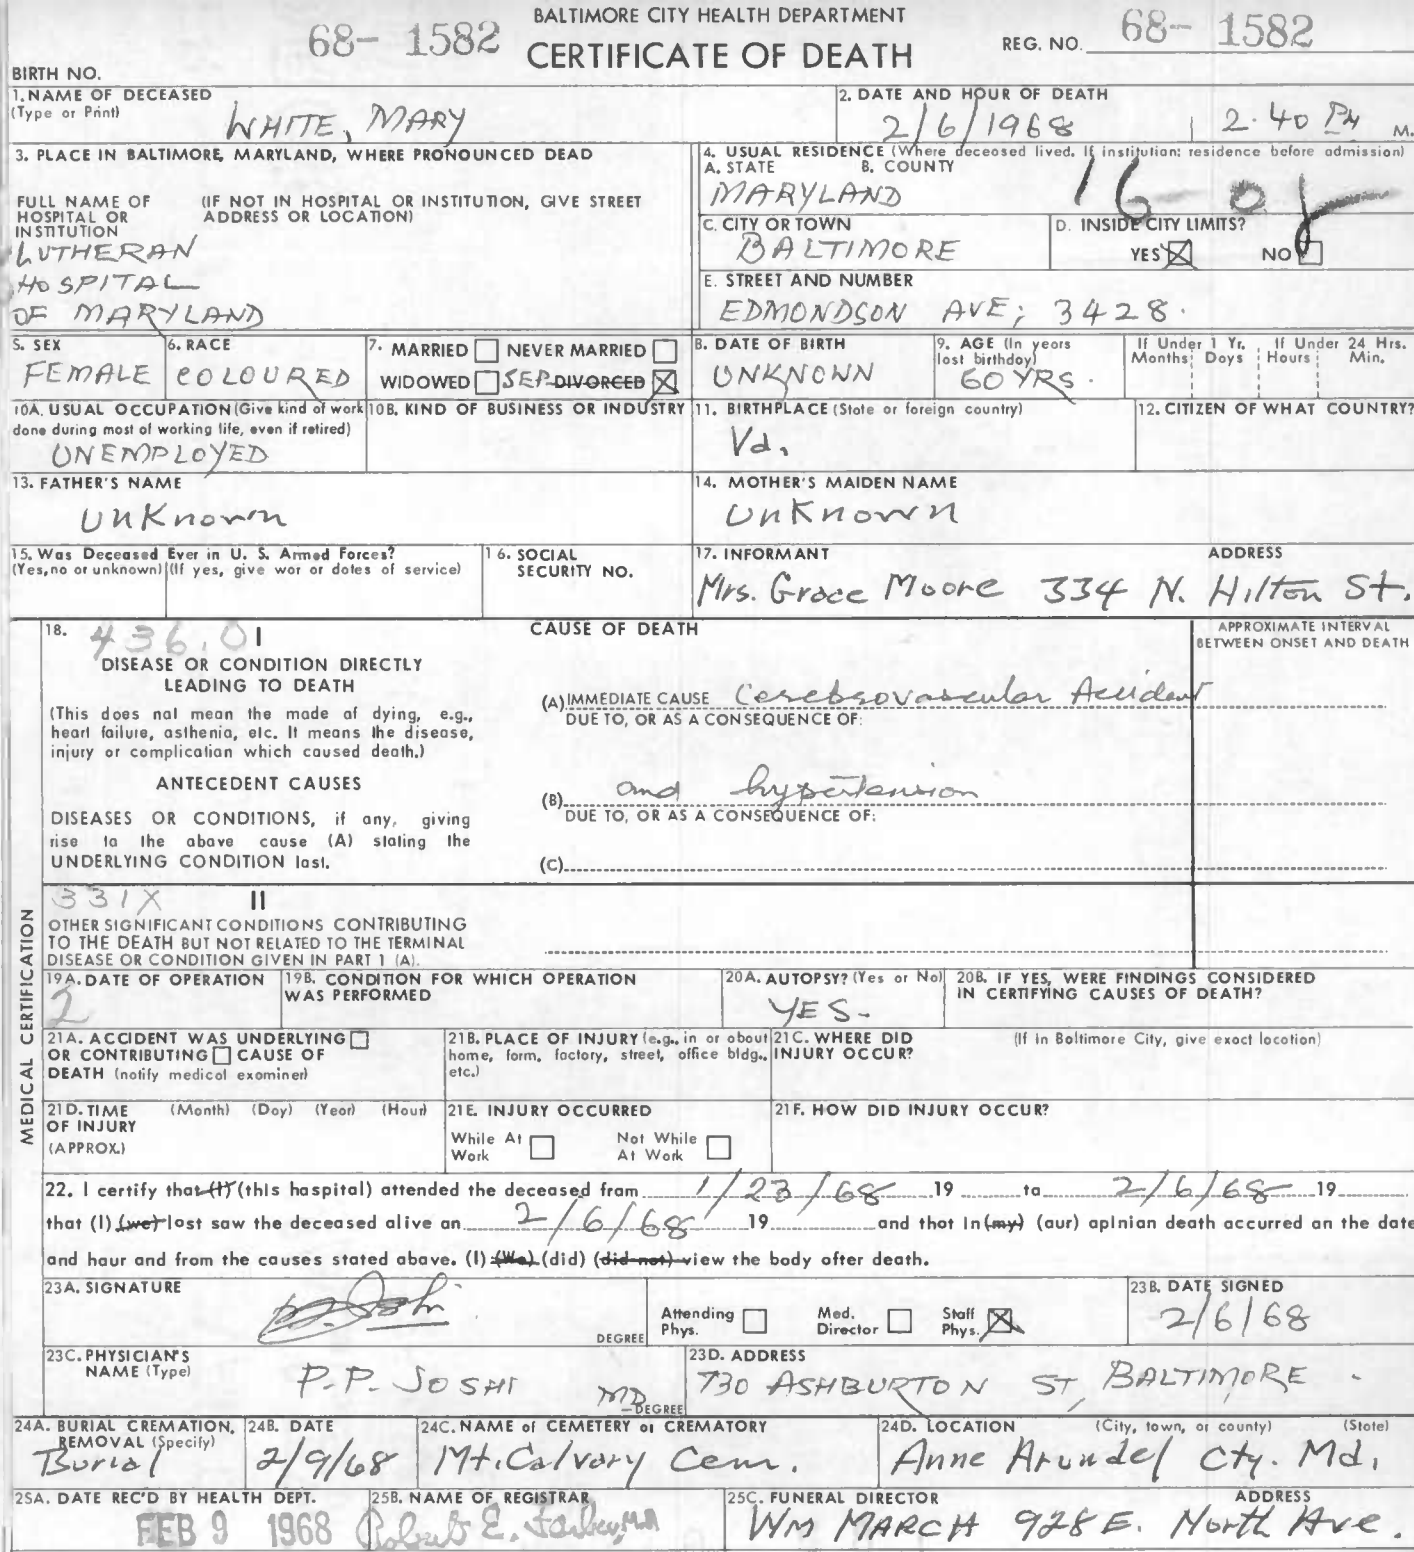 BALTIMORE CITY HEALTH DEPARTMENT
68- 1582 CERTIFICATE OF DEATH REG. NO. 68- 1582
BIRTH NO.
1. NAME OF DECEASED
(Type or Print) WHITE, MARY
2. DATE AND HOUR OF DEATH
2/6/1968 2.40 PM M.
3. PLACE IN BALTIMORE, MARYLAND, WHERE PRONOUNCED DEAD
FULL NAME OF HOSPITAL OR INSTITUTION (IF NOT IN HOSPITAL OR INSTITUTION, GIVE STREET ADDRESS OR LOCATION)
LUTHERAN
HOSPITAL
OF MARYLAND
4. USUAL RESIDENCE (Where deceased lived. If institution: residence before admission)
A. STATE B. COUNTY
MARYLAND 16-08
C. CITY OR TOWN
BALTIMORE
D. INSIDE CITY LIMITS?
YES NO
E. STREET AND NUMBER
EDMONDSON AVE; 3428.
5. SEX
FEMALE
6. RACE
COLOURED
7. MARRIED NEVER MARRIED
WIDOWED SEP DIVORCED
8. DATE OF BIRTH
UNKNOWN
9. AGE (In years last birthday)
60 YRS.
If Under 1 Yr. If Under 24 Hrs.
Months Days Hours Min.
10A. USUAL OCCUPATION (Give kind of work done during most of working life, even if retired)
UNEMPLOYED
10B. KIND OF BUSINESS OR INDUSTRY
11. BIRTHPLACE (State or foreign country)
Va.
12. CITIZEN OF WHAT COUNTRY?
13. FATHER'S NAME
Unknown
14. MOTHER'S MAIDEN NAME
Unknown
15. Was Deceased Ever in U. S. Armed Forces?
(Yes, no or unknown) (If yes, give war or dates of service)
16. SOCIAL SECURITY NO.
17. INFORMANT ADDRESS
Mrs. Grace Moore 334 N. Hilton St.
MEDICAL CERTIFICATION
18. 436.0 I
DISEASE OR CONDITION DIRECTLY
LEADING TO DEATH
(This does not mean the mode of dying, e.g.,
heart failure, asthenia, etc. It means the disease,
injury or complication which caused death.)
ANTECEDENT CAUSES
DISEASES OR CONDITIONS, if any, giving
rise to the above cause (A) stating the
UNDERLYING CONDITION last.
CAUSE OF DEATH
APPROXIMATE INTERVAL
BETWEEN ONSET AND DEATH
(A) IMMEDIATE CAUSE Cerebrovascular Accident
DUE TO, OR AS A CONSEQUENCE OF:
(B) and hypertension
DUE TO, OR AS A CONSEQUENCE OF:
(C)
331X II
OTHER SIGNIFICANT CONDITIONS CONTRIBUTING
TO THE DEATH BUT NOT RELATED TO THE TERMINAL
DISEASE OR CONDITION GIVEN IN PART 1 (A).
19A. DATE OF OPERATION
2
19B. CONDITION FOR WHICH OPERATION
WAS PERFORMED
20A. AUTOPSY? (Yes or No)
YES-
20B. IF YES, WERE FINDINGS CONSIDERED
IN CERTIFYING CAUSES OF DEATH?
21A. ACCIDENT WAS UNDERLYING
OR CONTRIBUTING CAUSE OF
DEATH (notify medical examiner)
21B. PLACE OF INJURY (e.g., in or about
home, farm, factory, street, office bldg.,
etc.)
21C. WHERE DID (If in Baltimore City, give exact location)
INJURY OCCUR?
21D. TIME (Month) (Day) (Year) (Hour)
OF INJURY
(APPROX.)
21E. INJURY OCCURRED
While At Work Not While At Work
21F. HOW DID INJURY OCCUR?
22. I certify that (I) (this hospital) attended the deceased from 1/23/68 19 to 2/6/68 19
that (I) (we) last saw the deceased alive on 2/6/68 19 and that in (my) (our) opinion death occurred on the date
and hour and from the causes stated above. (I) (We) (did) (did not) view the body after death.
23A. SIGNATURE
P.P. Joshi DEGREE
Attending Phys. Med. Director Staff Phys.
23B. DATE SIGNED
2/6/68
23C. PHYSICIAN'S
NAME (Type) P.P. JOSHI MD DEGREE
23D. ADDRESS
730 ASHBURTON ST, BALTIMORE.
24A. BURIAL CREMATION,
REMOVAL (Specify)
Burial
24B. DATE
2/9/68
24C. NAME of CEMETERY or CREMATORY
Mt. Calvary Cem.
24D. LOCATION (City, town, or county) (State)
Anne Arundel Cty. Md.
25A. DATE REC'D BY HEALTH DEPT.
FEB 9 1968
25B. NAME OF REGISTRAR
Robert E. Farber, M.D.
25C. FUNERAL DIRECTOR ADDRESS
WM MARCH 928 E. North Ave.